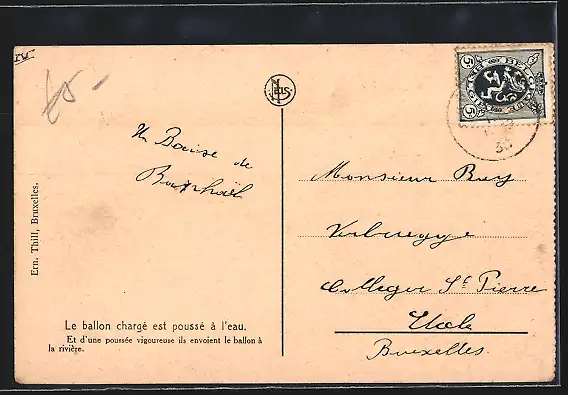 Un Baise de
Raphaël
Ern. Thill, Bruxelles.
Le ballon chargé est poussé à l'eau.
Et d'une poussée vigoureuse ils envoient le ballon à
la rivière.
NELS
Monsieur
Verbruegge
Colleger St Pierre
Uccle
Bruxelles.
5c 5c